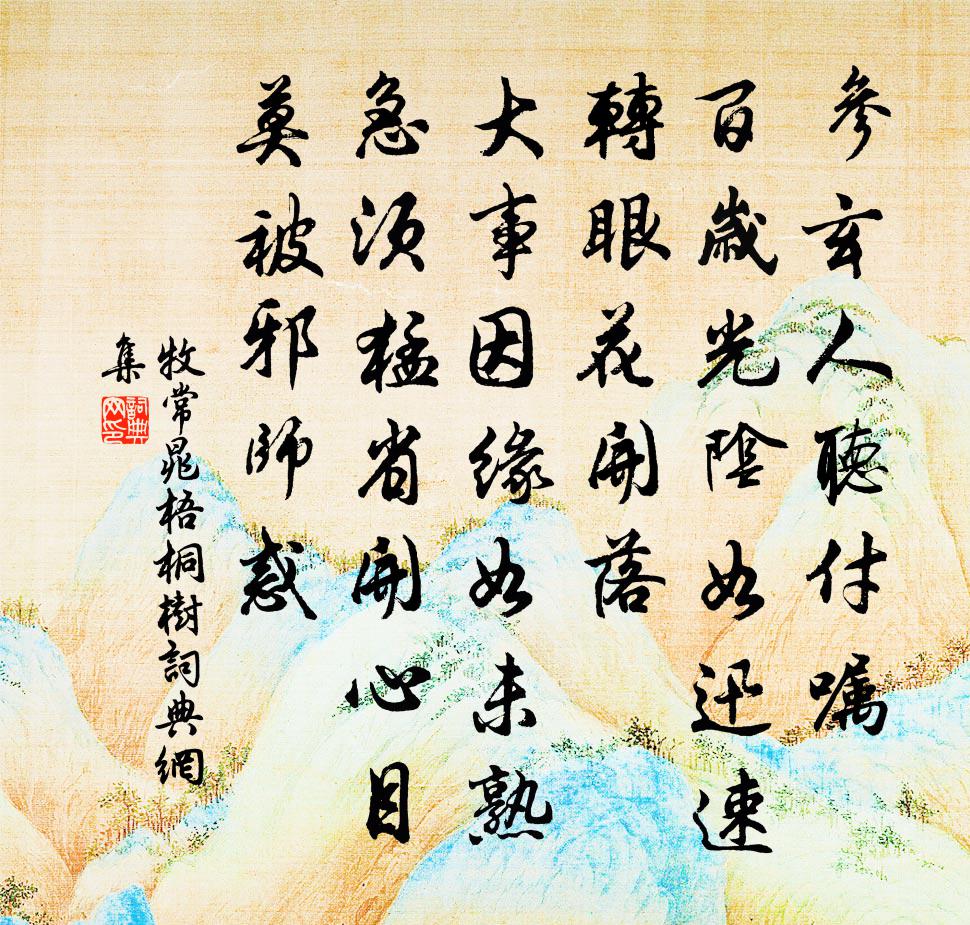 參玄人聽付囑
百歲光陰如迅速
轉眼花開落
大事因緣如未熟
急須猛省開心目
莫被邪師惑
牧常晁梧桐樹詞典網
集
詞典
网印